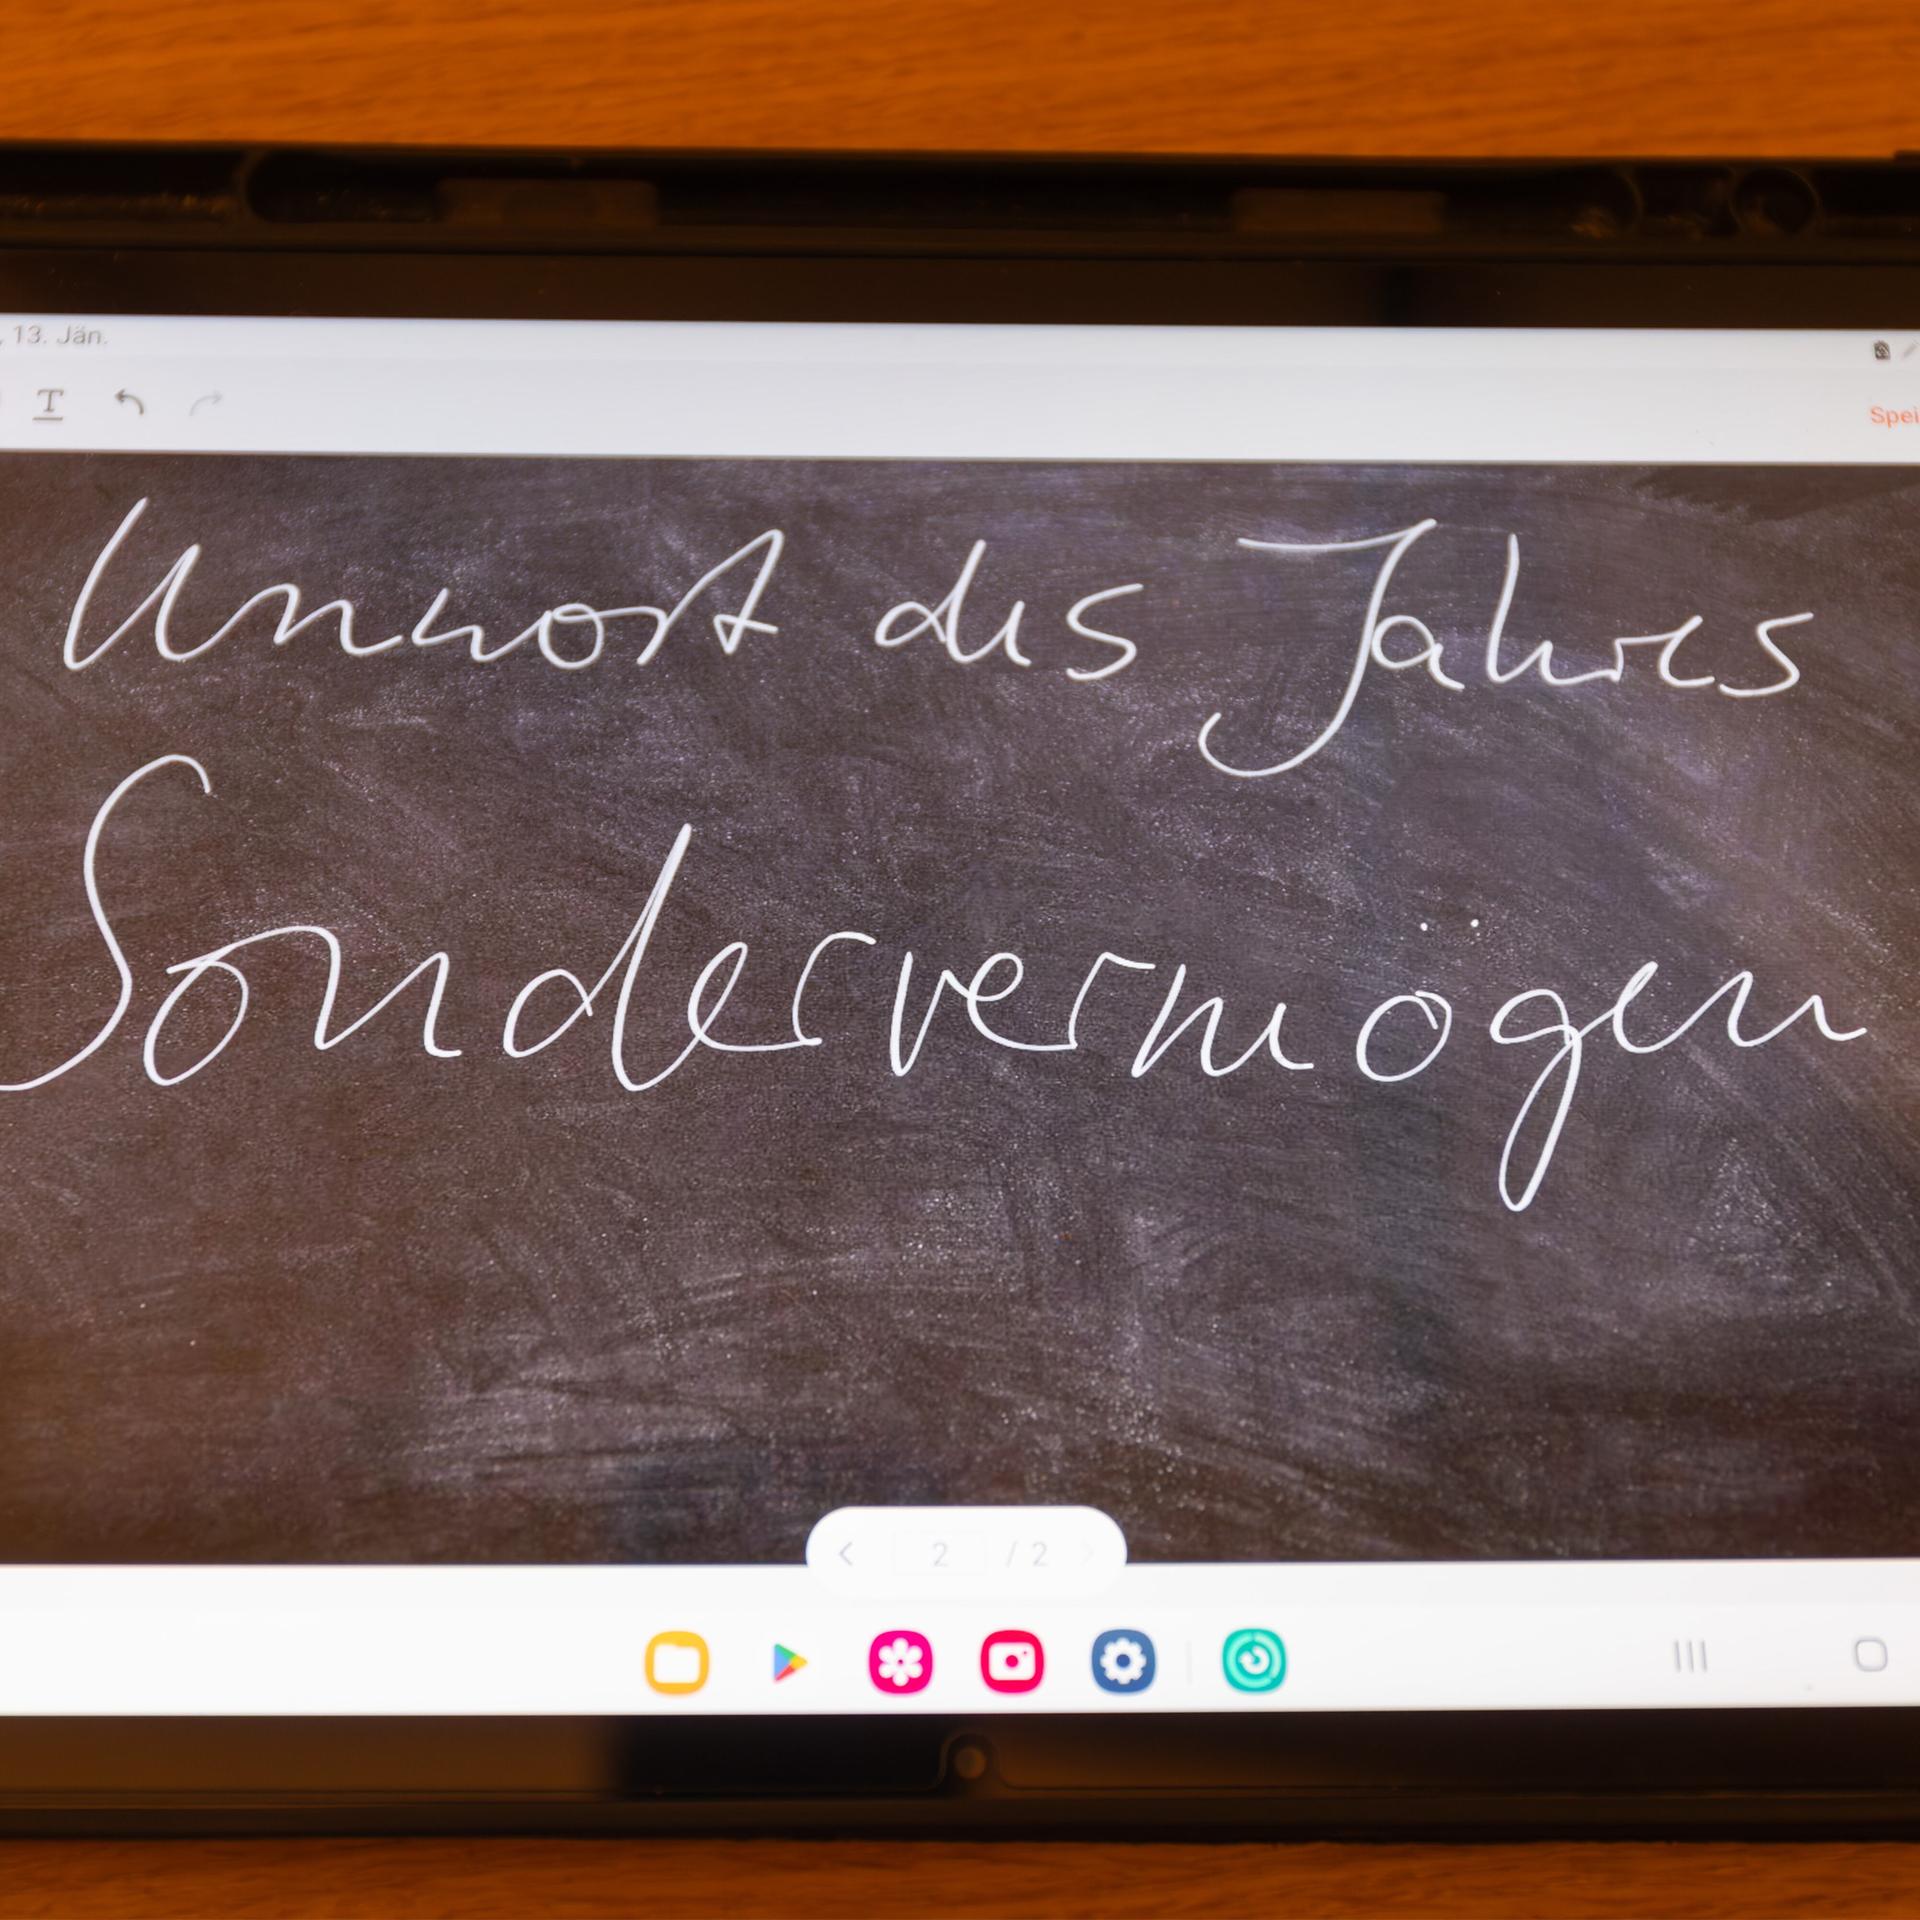 , 13. Jän.
T
Spei
Unwort des Jahres
Sondervermögen
2 / 2